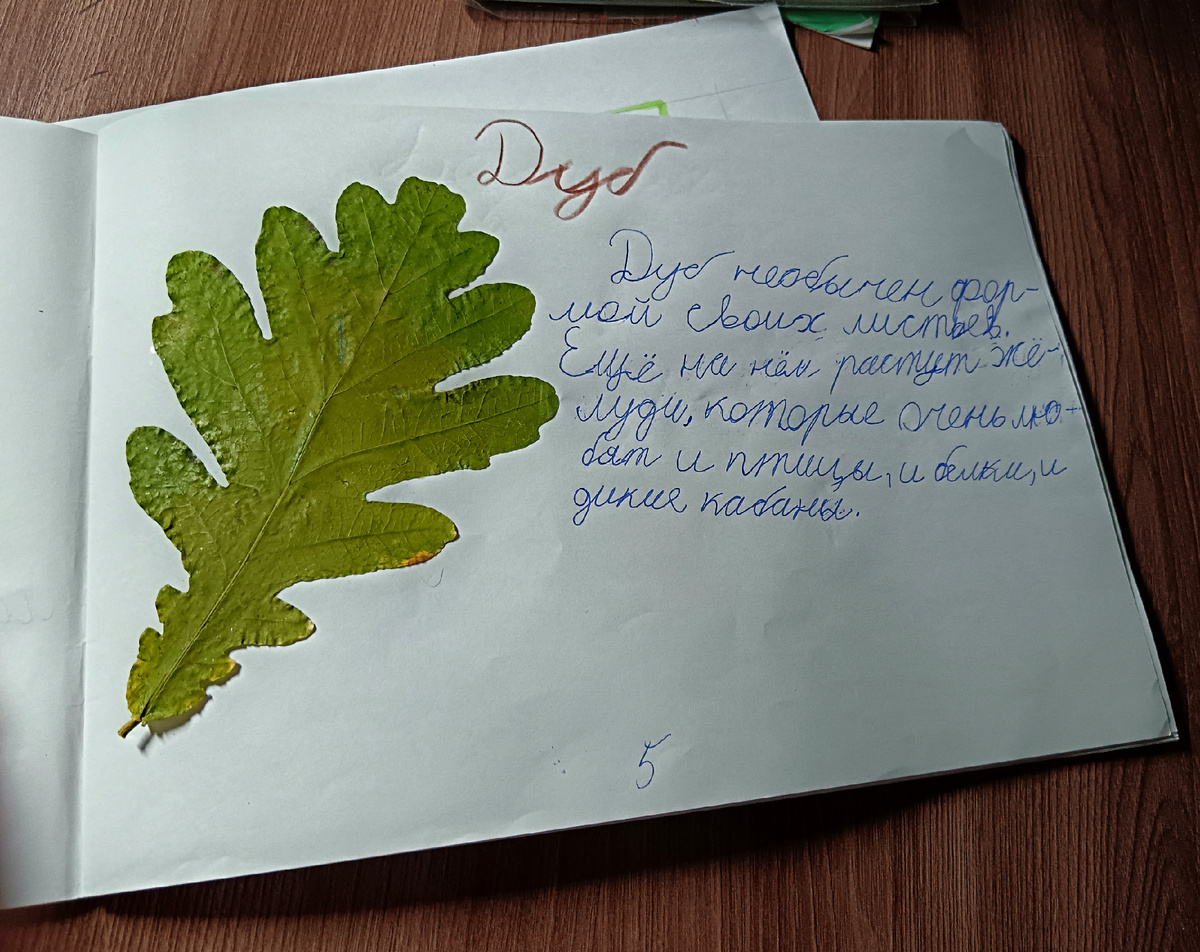 Дуб
Дуб необычен фор-
мой своих листьев.
Ещё на нём растут жё-
луди, которые очень лю-
бят и птицы, и белки, и
дикие кабаны.
5